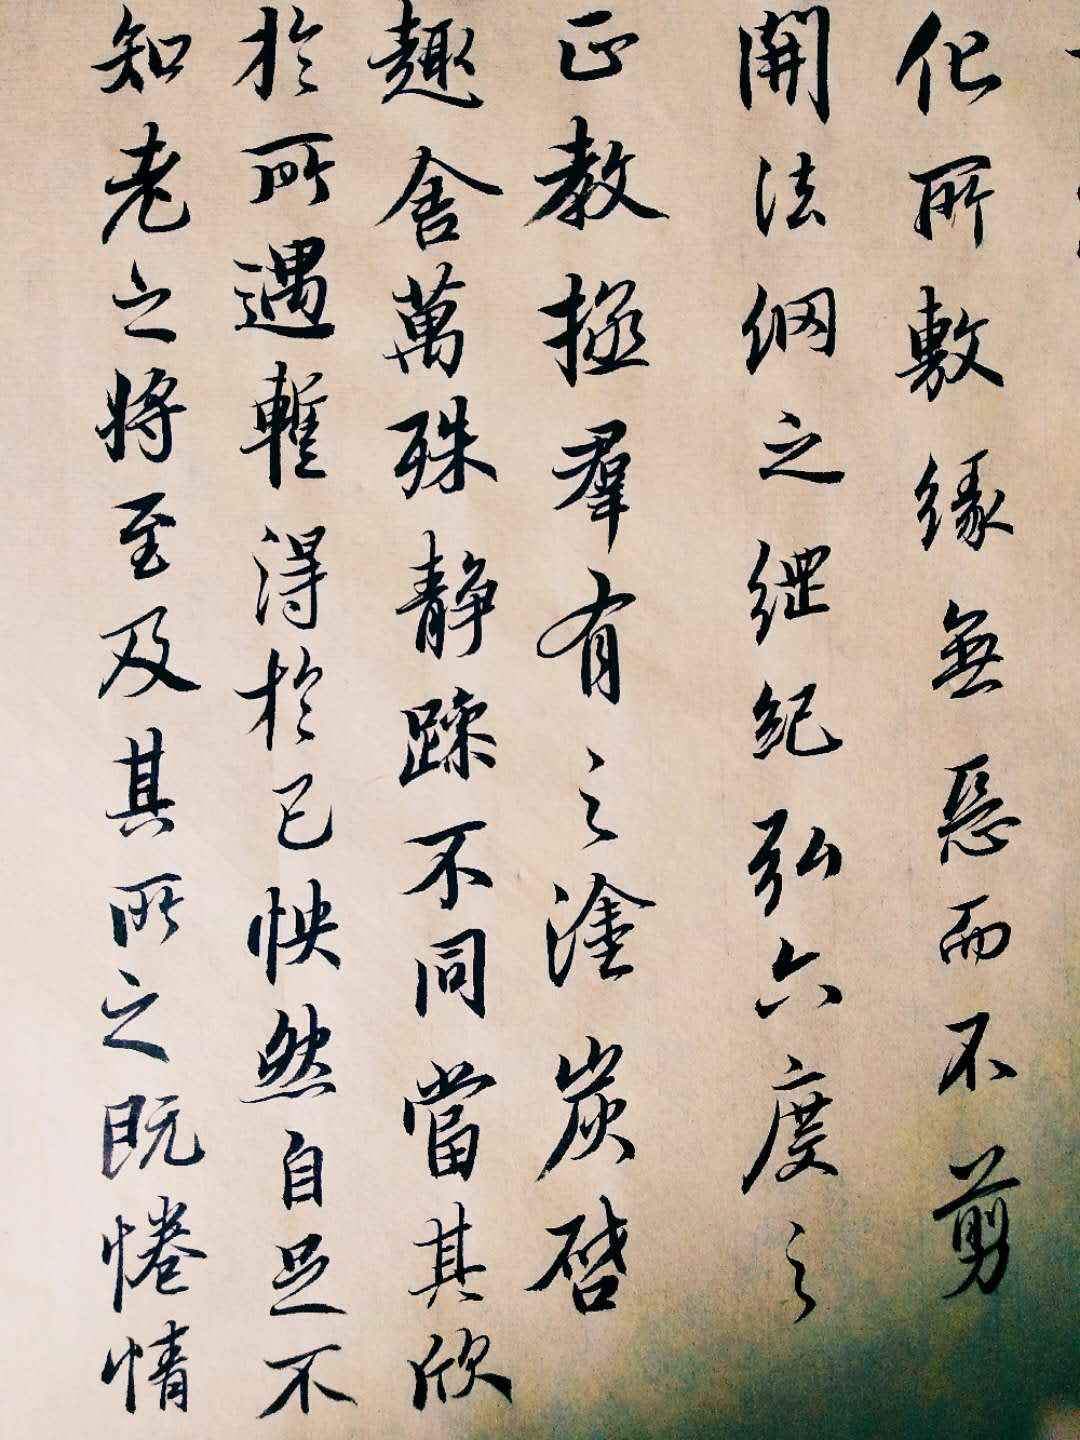 化所敷緣無惡而不剪
開法綱之綱紀弘六度之
正教拯羣有之塗炭啓
趣舍萬殊靜躁不同當其欣
於所遇暫得於己怏然自足不
知老之將至及其所之既惓情